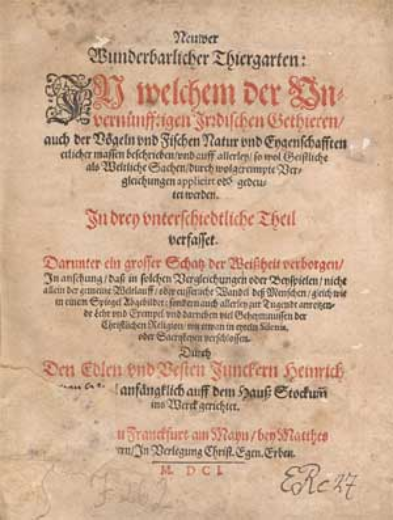 Neuwer
Wunderbarlicher Thiergarten:
IN welchem der Vn-
vernünfftigen Irdischen Gethieren/
auch der Vögeln vnd Fischen Natur vnd Eygenschafften
etlicher massen beschrieben/vnd auff allerley/so wol Geistliche
als Weltliche Sachen/durch wolgereympte Ver-
gleichungen applicirt oder gedeu-
tet werden.
In drey vnterschiedtliche Theil
verfasset.
Darunter ein grosser Schatz der Weißheit verborgen/
In ansehung/daß in solchen Vergleichungen oder Beyspielen/nicht
allein der gemeine Weltlauff/oder eusserliche Wandel deß Menschen/gleich wie
in einem Spiegel Abgebildet: sondern auch allerley zur Tugendt anreitzen-
de Lehr vnd Exempel vnd darneben viel Geheymnussen der
Christlichen Religion/wie etwan in
oder verschlossen.
Durch
Den Edlen vnd Vesten Junckern Heinrich
anfängklich auff dem Hauß Stockum̃
ins Werck gerichtet.
Franckfurt am Mayn/bey Matthes
In Verlegung Christ. Egen. Erben.
M. DCI.